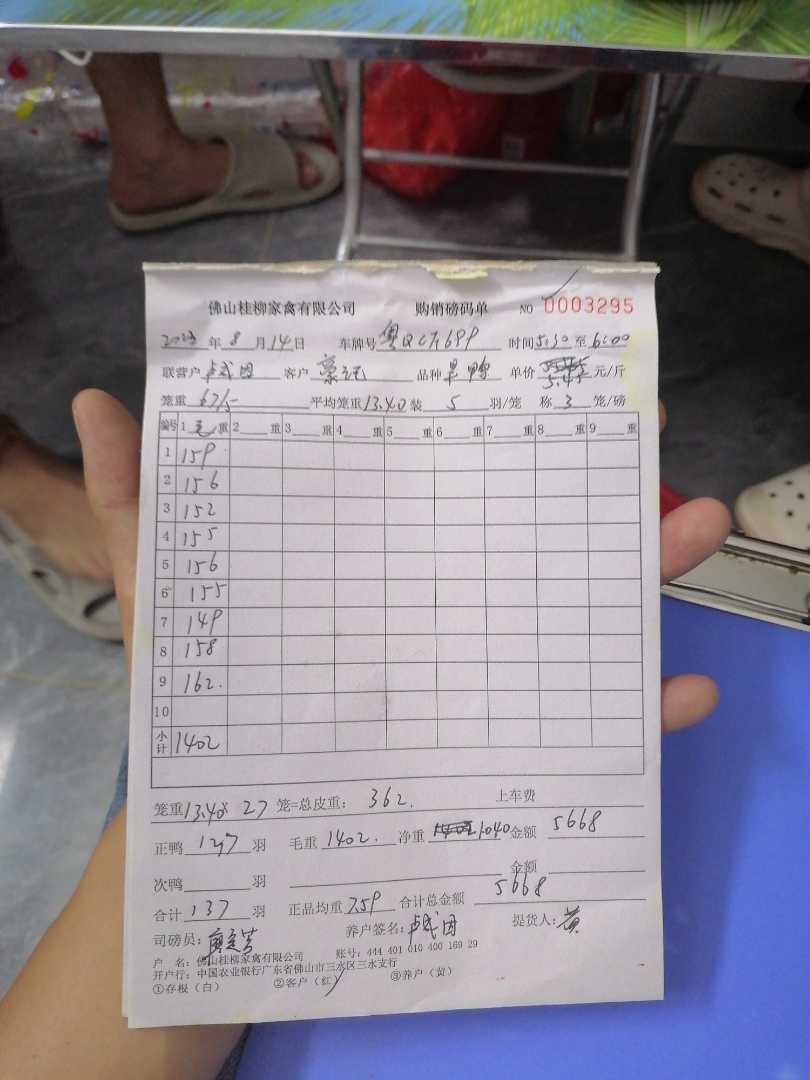 佛山桂柳家禽有限公司 购销磅码单 NO 0003295
2023年8月14日 车牌号 粤Q 699 时间5:30至6:00
联营户 客户 品种 旱鸭 单价 5.45 元/斤
笼重 67/5 平均笼重13.40装 5 羽/笼 称 3 笼/磅
编号 1 毛 重 2 重 3 重 4 重 5 重 6 重 7 重 8 重 9 重
1 159
2 156
3 152
4 155
5 156
6 155
7 149
8 158
9 162.
10
小计 1402
笼重13.40x 27 笼=总皮重: 362. 上车费
正鸭 137 羽 毛重 1402. 净重 1040 金额 5668
次鸭 羽 金额
合计 137 羽 正品均重 7.59 合计总金额 5668
司磅员: 养户签名: 提货人: 黄
户 名: 佛山桂柳家禽有限公司 账号: 444 401 010 400 169 29
开户行: 中国农业银行广东省佛山市三水区三水支行
①存根（白） ②客户（红） ③养户（黄）